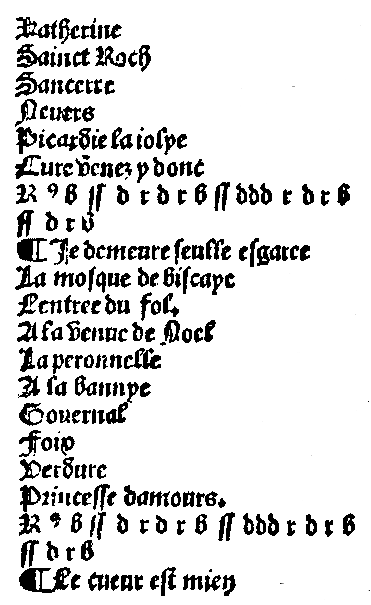 Katherine
Sainct Roch
Sancerre
Neuers
Picardie la iolye
Cure venez y donc
R 9 b ſſ d r d r b ſſ ddd r d r b
ſſ d r b
¶ Je demeure ſeulle eſgaree
La moſque de biſcaye
Lentree du fol.
A la venue de Noel
La peronnelle
A la bannye
Gouernal
Foix
Verdure
Princeſſe damours.
R 9 b ſſ d r d r b ſſ ddd r d r b
ſſ d r b
¶ Le cueur eſt mien